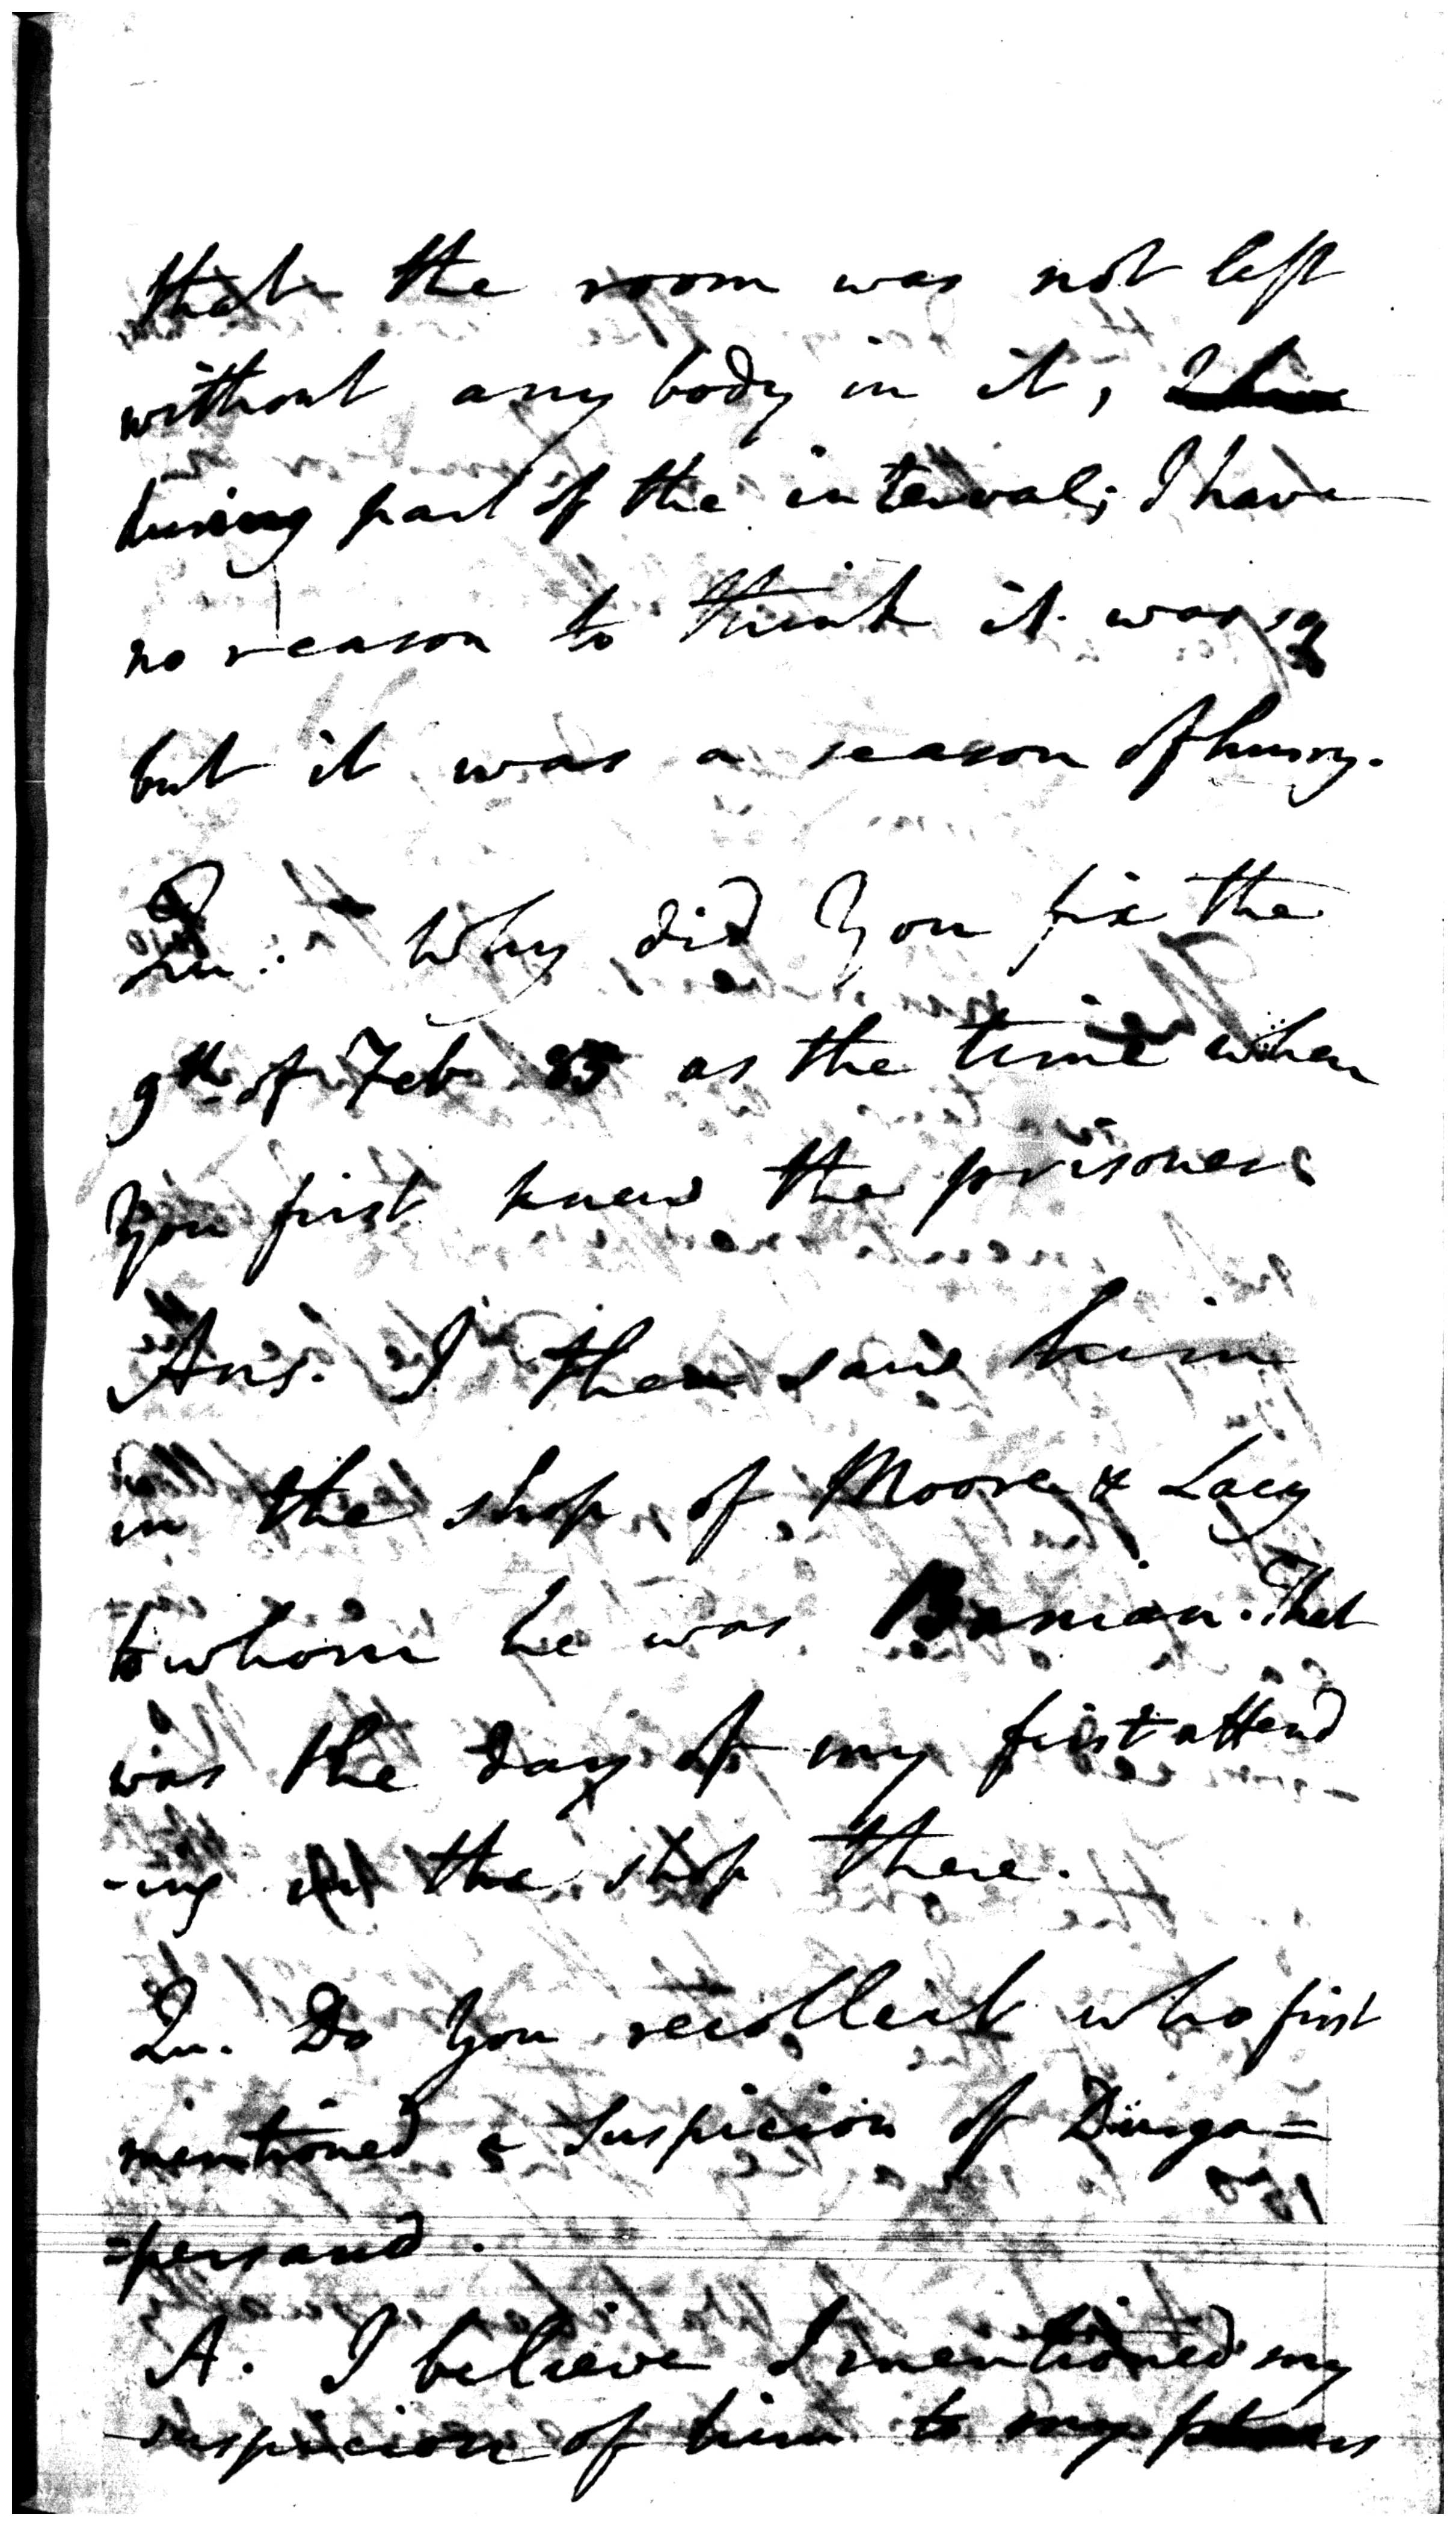 that the room was not left
without any body in it,
during part of the interval; I have
no reason to think it was so
but it was a season of hurry.
Qu: Why did You fix the
9th of Feb 85 as the time when
You first knew the prisoner
Ans. I then saw him
in the shop of Moore & Lacy
to whom he was Banian. That
was the day of my first attend
-ing in the shop there.
Qu. Do You recollect who first
mentioned a suspicion of Durga=
=persaud.
A. I believe I mentioned my
suspicion of him to my